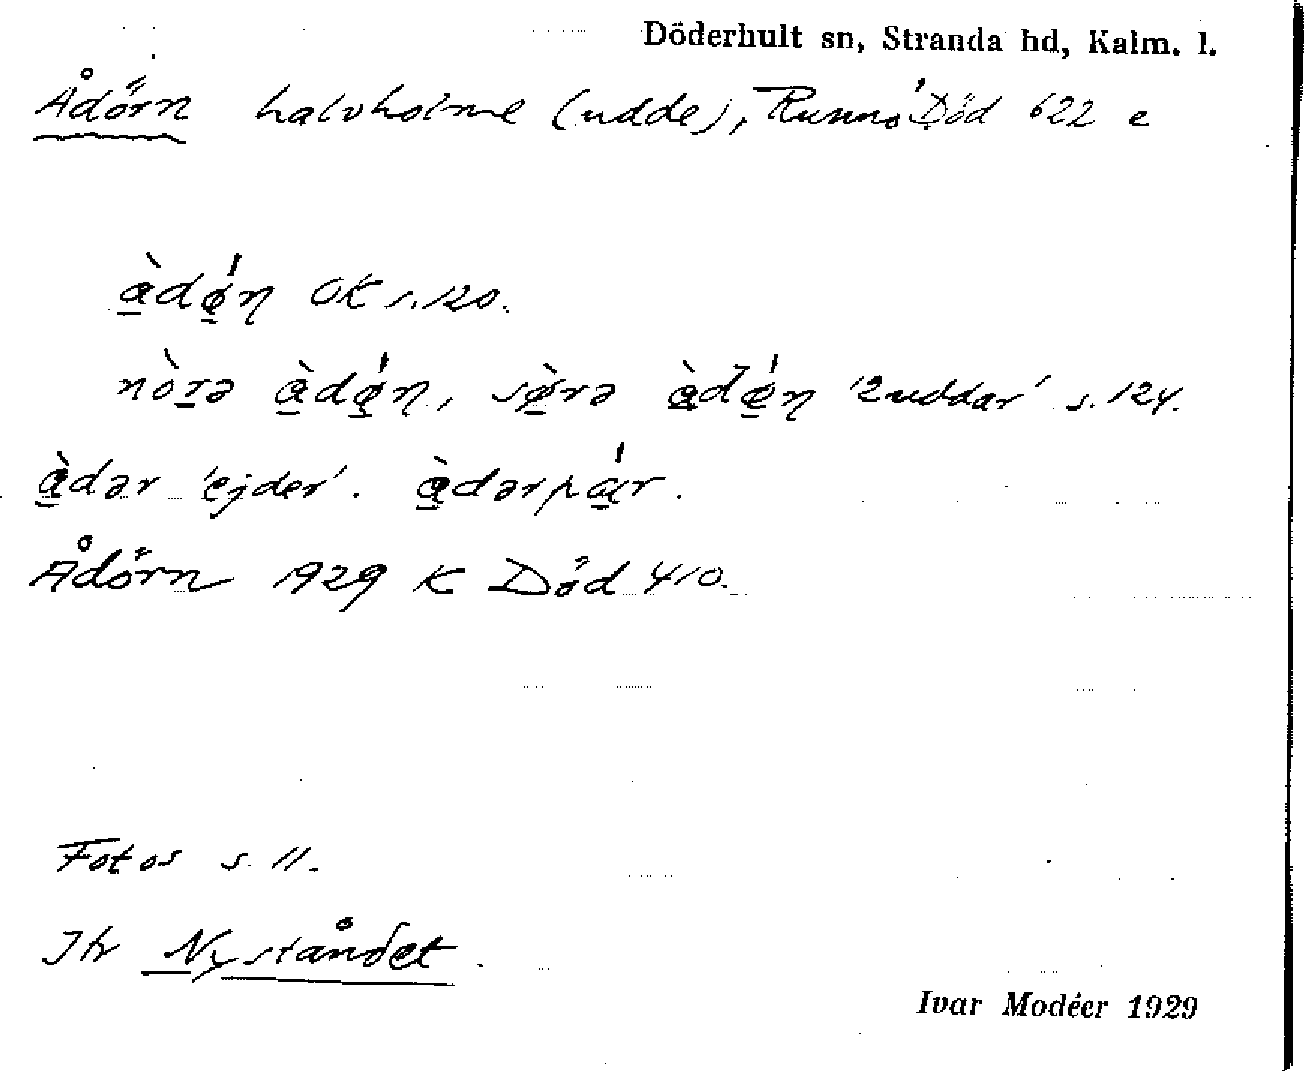 Döderhult sn, Stranda hd, Kalm. l.
Ådörn halvholme (udde), Runnö Död 622 e
àdǿn OK s. 120.
nòrə àdǿn, sø̀rə àdǿn '2 uddar' s. 124.
àdər 'ejder'. àdərpár.
Ådörn 1929 K Död 410.
Fotos s. 11.
Jfr Nyståndet.
Ivar Modéer 1929